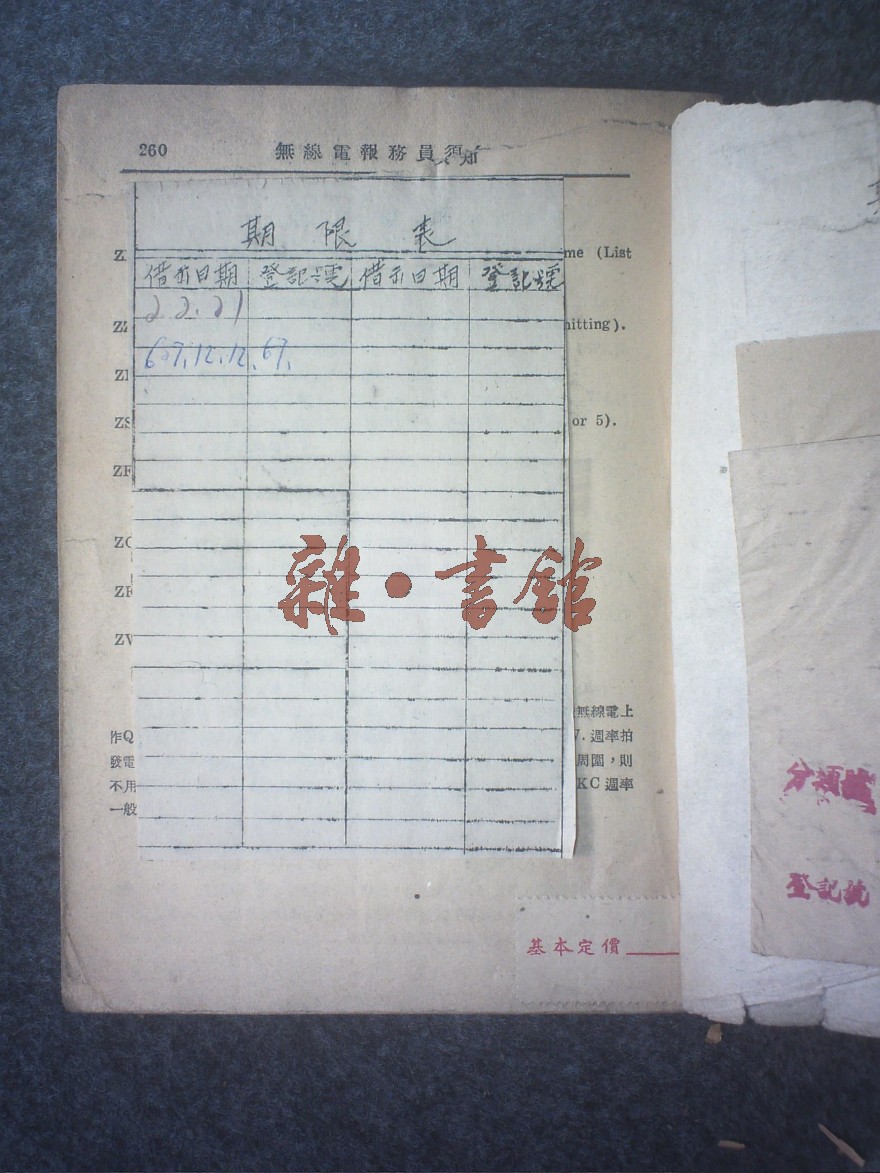 260 無線電報務員須知
期限表
借出日期 登記號 借出日期 登記號
22.21
67.12.12.67.
Z
me (List
itting).
Z1
ZS
or 5).
ZF
ZC
ZF
雜·書館
無線電上
作Q
V. 週率拍
發電
周圍,則
不用
KC 週率
一般
分類號
登記號
基本定價